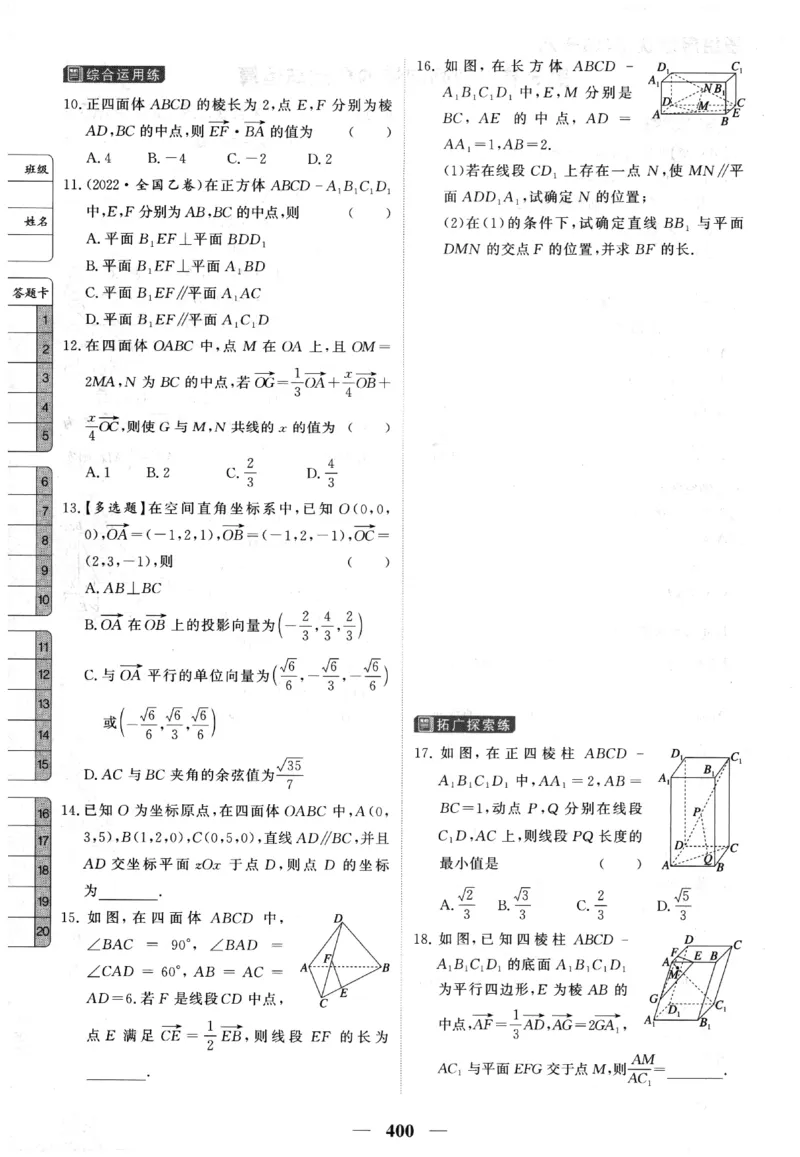 综合运用练
10. 正四面体 ABCD 的棱长为 2,点 E,F 分别为棱
AD,BC 的中点,则 $\overrightarrow{EF}\cdot\overrightarrow{BA}$ 的值为 ( )
A. 4 B. −4 C. −2 D. 2
11. (2022·全国乙卷)在正方体 ABCD−A₁B₁C₁D₁
中,E,F 分别为 AB,BC 的中点,则 ( )
A. 平面 B₁EF⊥平面 BDD₁
B. 平面 B₁EF⊥平面 A₁BD
C. 平面 B₁EF∥平面 A₁AC
D. 平面 B₁EF∥平面 A₁C₁D
12. 在四面体 OABC 中,点 M 在 OA 上,且 OM=
2MA,N 为 BC 的中点,若 $\overrightarrow{OG}=\frac{1}{3}\overrightarrow{OA}+\frac{x}{4}\overrightarrow{OB}+$
$\frac{x}{4}\overrightarrow{OC}$,则使 G 与 M,N 共线的 x 的值为 ( )
A. 1 B. 2 C. $\frac{2}{3}$ D. $\frac{4}{3}$
13. 【多选题】在空间直角坐标系中,已知 O(0,0,
0),$\overrightarrow{OA}$=(−1,2,1),$\overrightarrow{OB}$=(−1,2,−1),$\overrightarrow{OC}$=
(2,3,−1),则 ( )
A. AB⊥BC
B. $\overrightarrow{OA}$ 在 $\overrightarrow{OB}$ 上的投影向量为 $\left(-\frac{2}{3},\frac{4}{3},\frac{2}{3}\right)$
C. 与 $\overrightarrow{OA}$ 平行的单位向量为 $\left(\frac{\sqrt{6}}{6},-\frac{\sqrt{6}}{3},-\frac{\sqrt{6}}{6}\right)$
或 $\left(-\frac{\sqrt{6}}{6},\frac{\sqrt{6}}{3},\frac{\sqrt{6}}{6}\right)$
D. AC 与 BC 夹角的余弦值为 $\frac{\sqrt{35}}{7}$
14. 已知 O 为坐标原点,在四面体 OABC 中,A(0,
3,5),B(1,2,0),C(0,5,0),直线 AD∥BC,并且
AD 交坐标平面 zOx 于点 D,则点 D 的坐标
为________.
15. 如图,在四面体 ABCD 中,
∠BAC = 90°, ∠BAD =
∠CAD = 60°, AB = AC =
AD=6.若 F 是线段CD 中点,
点 E 满足 $\overrightarrow{CE}=\frac{1}{2}\overrightarrow{EB}$,则线段 EF 的长为
________.
D
F
A
B
E
C
16. 如图,在长方体 ABCD −
A₁B₁C₁D₁ 中,E,M 分别是
BC, AE 的中点, AD =
AA₁=1,AB=2.
(1)若在线段 CD₁ 上存在一点 N,使 MN∥平
面 ADD₁A₁,试确定 N 的位置;
(2)在(1)的条件下,试确定直线 BB₁ 与平面
DMN 的交点 F 的位置,并求 BF 的长.
D₁ C₁
A₁ N B₁
D M C
A B E
拓广探索练
17. 如图,在正四棱柱 ABCD −
A₁B₁C₁D₁ 中,AA₁ = 2,AB =
BC=1,动点 P,Q 分别在线段
C₁D,AC 上,则线段 PQ 长度的
最小值是 ( )
A. $\frac{\sqrt{2}}{3}$ B. $\frac{\sqrt{3}}{3}$ C. $\frac{2}{3}$ D. $\frac{\sqrt{5}}{3}$
D₁ C₁
A₁ B₁
P
D C
A Q B
18. 如图,已知四棱柱 ABCD −
A₁B₁C₁D₁ 的底面 A₁B₁C₁D₁
为平行四边形,E 为棱 AB 的
中点,$\overrightarrow{AF}=\frac{1}{3}\overrightarrow{AD}$,$\overrightarrow{AG}=2\overrightarrow{GA_1}$,
AC₁ 与平面 EFG 交于点 M,则 $\frac{AM}{AC_1}$=________.
D C
F
A E B
M
G
D₁ C₁
A₁ B₁
班级
姓名
答题卡
1
2
3
4
5
6
7
8
9
10
11
12
13
14
15
16
17
18
19
20
— 400 —